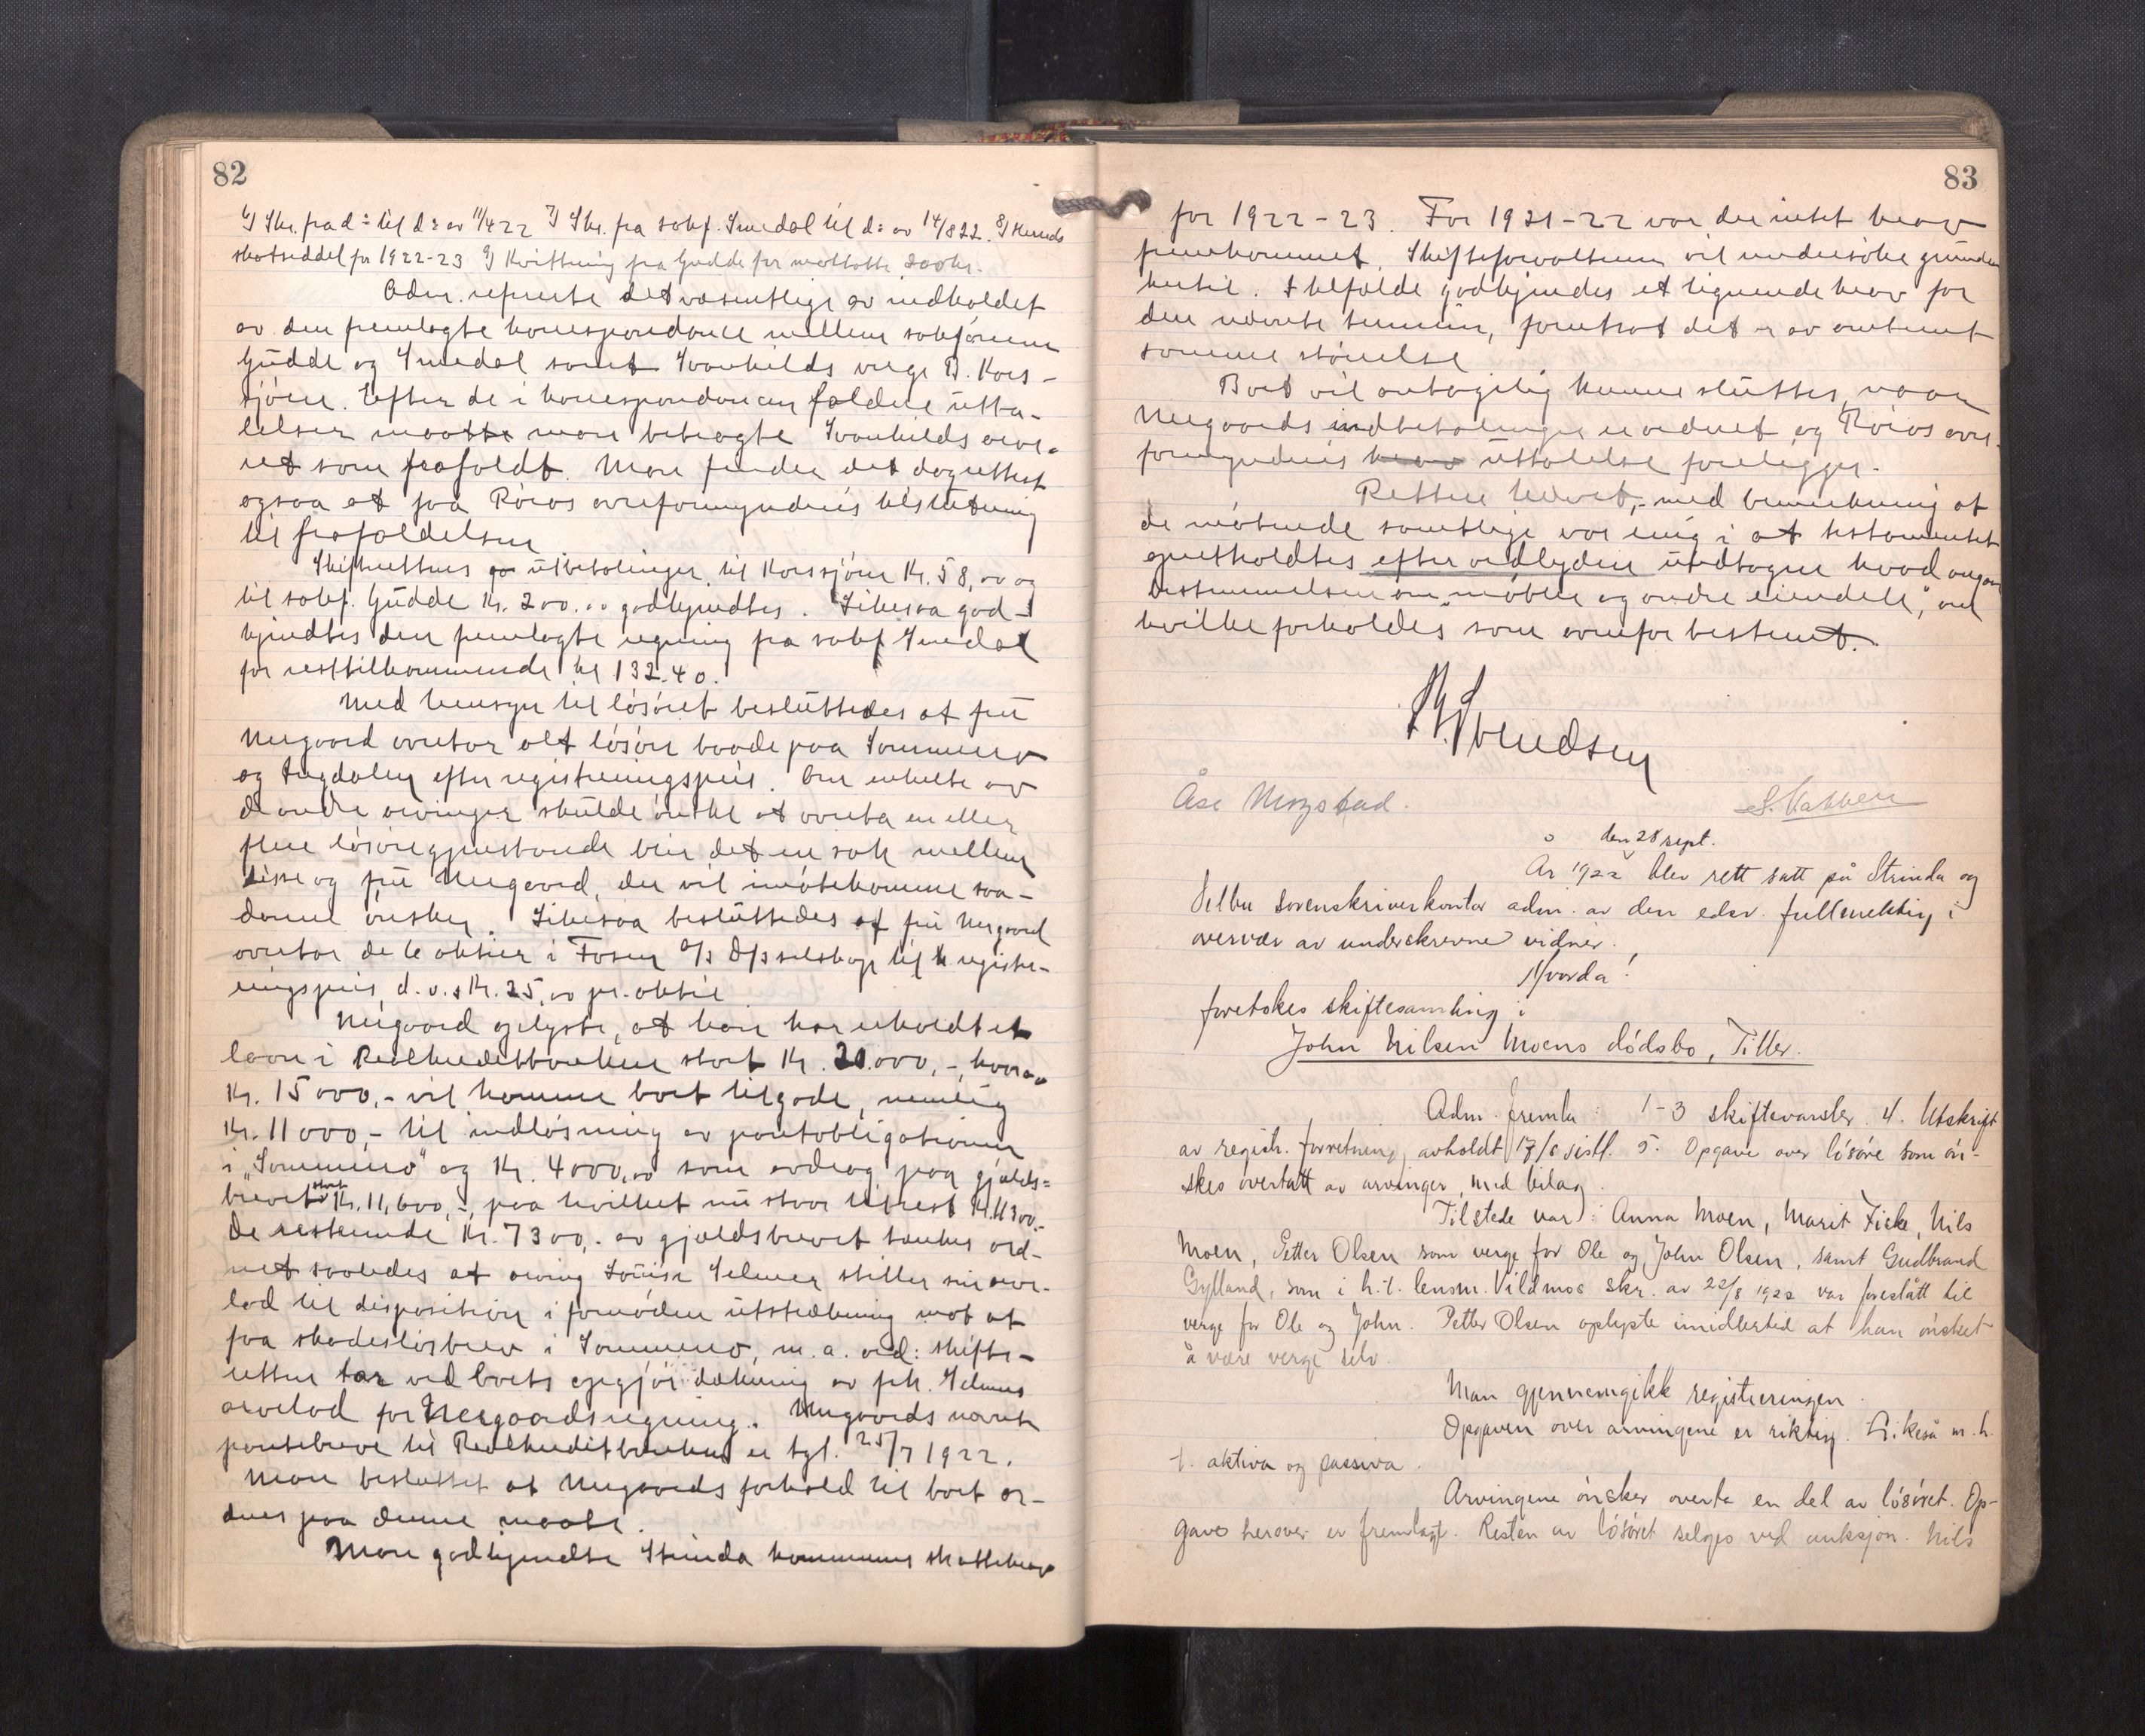 82
6) Skr. fra d: til d: av 11/4 22 7) Skr. fra sakf. Smedal til d: av 14/8 22. 8) Herreds
skatseddel for 1922-23 9) Kvittering fra Gudde for mottatte 200 kr.
Adm. refererte det væsentlige av indholdet
av den fremlagte korrespondance mellem sakførerne
Gudde og Smedal samt Svanhilds verge B. Kors-
sjøen. Efter de i korrespondancen faldne utta-
lelser maatte man betragte Svanhilds arve-
ret som frafaldt. Man finder det dog rettest
ogsaa at faa Røros overformynderis tilslutning
til frafaldelsen
Skifterettens utbetalinger til Korssjøen Kr. 58,00 og
til sakf. Gudde Kr. 200.00 godkjendtes. Likesaa god-
kjendtes den fremlagte regning fra sakf Smedal
for resttilkommende kr 132.40.
Med hensyn til løsøret besluttedes at fru
Nergaard overtar alt løsøre baade paa Sommero
og Tugdalen efter registreringspris. Om enkelte av
de andre arvinger skulde ønske at overta en eller
flere løsøregjenstande blir det en sak mellem
disse og fru Nergaard, der vil imøtekomme saa-
danne ønsker. Likesaa besluttedes at fru Nergaard
overtar de 6 aktier i Fosen a/s D/s selskap til registre-
ringspris, d.v.s Kr. 25,00 pr. aktie
Nergaard oplyste, at han har erholdt et
laan i Realkreditbanken stort Kr. 20.000,-, hvorav
Kr. 15000,- vil komme boet tilgode, nemlig
Kr. 11000,- til indløsning av pantobligationen
i "Sommero" og Kr. 4000,00 som avdrag paa gjælds=
brevet stort Kr. 11,600,-, paa hvilket nu staar til rest Kr. 11300.-
De resterende Kr. 7300,- av gjældsbrevet tænkes ord-
net saaledes at arving Louise Selmer stiller sin arve-
lod til disposition i fornøden utstrækning mot at
faa skadesløsbrev i Sommero, m.a. ord: skifte-
retten tar ved boets opgjør dækning av frk. Selmers
arvelod for Nergaards regning. Nergaards
pantebreve til Realkreditbanken er tgl. 25/7 1922.
Man besluttet at Nergaards forhold til boet or-
dnes paa denne maate.
Man godkjendte Strinda kommunes skattekrav
83
for 1922-23. For 1921-22 var der intet krav
fremkommet. Skifteforvalteren vil undersøke grunden
hertil. I tilfælde godkjendes et lignende krav for
den nævnte termin, forutsat det er av omtrent
samme størrelse
Boet vil antagelig kunne sluttes, naar
Nergaards indbetalinger er ordnet og Røros over-
formynderis uttalelse foreligger.
Retten hævet,- med bemerkning at
de møtende samtlige var enig i at testamentet
opretholdtes efter ordlyden undtagen hvad angaar
bestemmelsen om "møbler og andre eiendele", om
hvilke forholdes som ovenfor bestemt.
Svendsen
Åse Mogstad.
den 28 sept.
År 1922 blev rett satt på Strinda og
Selbu sorenskriverkontor adm. av den edsv. fullmektig i
overvær av underskrevne vidner.
Hvorda!
foretokes skiftesamling i
John Nilsen Moens dødsbo, Tiller.
Adm. fremla: 1-3 skiftevarsler. 4. Utskrift
av registr. forretning, avholdt 17/8 sistl. 5. Opgave over løsøre som øn-
skes overtatt av arvinger, med bilag.
Tilstede var: Anna Moen, Marit Fiske, Nils
Moen, Petter Olsen som verge for Ole og John Olsen, samt Gudbrand
Gylland, som i h.t. lensm. Vildmos skr. av 22/8 1922 var foreslått til
verge for Ole og John. Petter Olsen oplyste imidlertid at han ønsket
å være verge selv.
Man gjennemgikk registreringen.
Opgaven over arvingene er riktig. Likeså m.h.
t. aktiva og passiva.
Arvingene ønsker overta en del av løsøret. Op-
gave herover er fremlagt. Resten av løsøret selges ved auksjon. Nils